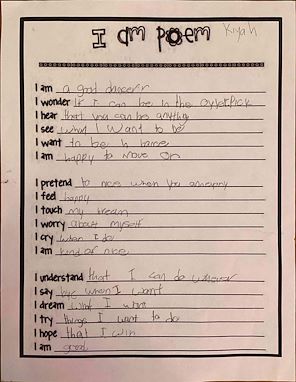 I am poem
Kiyah
I am a good dancerr
I wonder If I can be in the
I hear that you can be anything
I see what I want to be
I want to be h
I am happy to move on
I pretend to nice when you annoying
I feel happy
I touch my dream
I worry about myself
I cry when I do
I am kind or nice
I understand that I can do
I say bye when I want
I dream what I want
I try things I want to do
I hope that I win
I am good